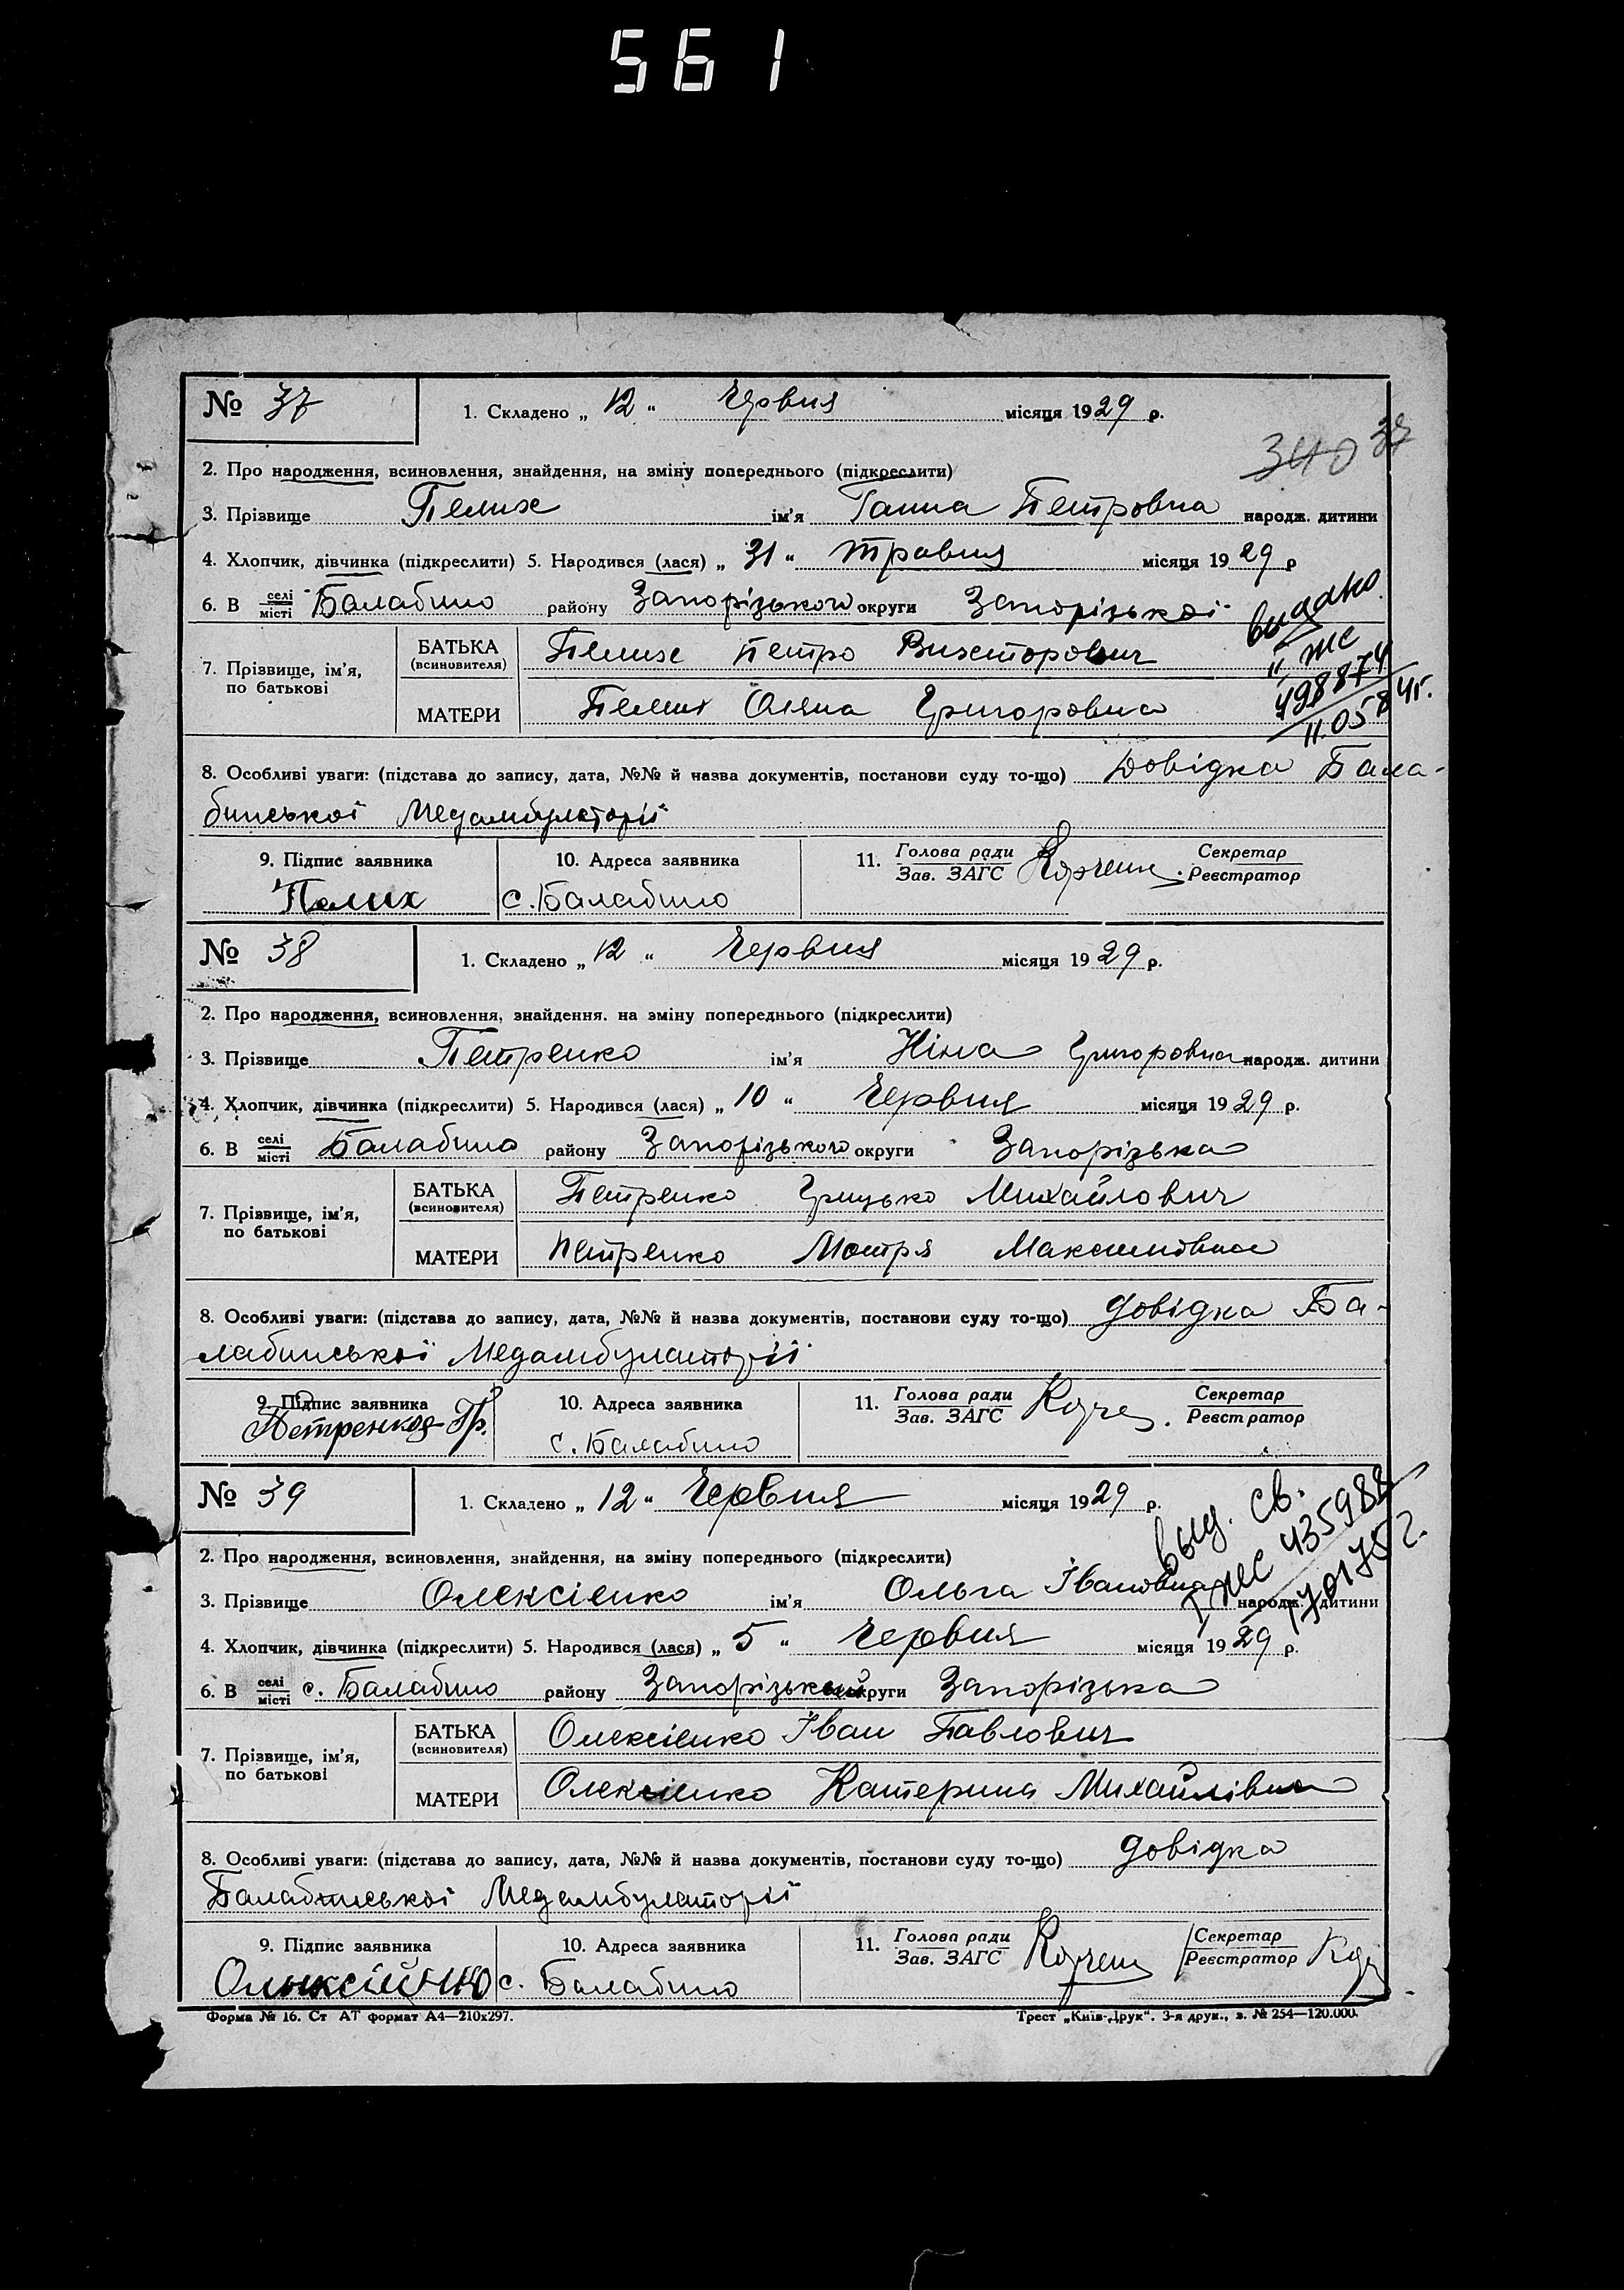 561
№ 37 1. Складено „ 12 “ Червня місяця 1929 р.
340 37
2. Про народження, всиновлення, знайдення, на зміну попереднього (підкреслити)
3. Прізвище Пелих ім'я Ганна Петровна народж. дитини
4. Хлопчик, дівчинка (підкреслити) 5. Народився (лася) „ 31 “ травня місяця 1929 р
6. В селі місті Балабино району Запорізького округи Запорізької
видано
II жс
498874
11.05 84г.
7. Прізвище, ім'я, по батькові
БАТЬКА (всиновителя) Пелих Петро Вихторович
МАТЕРИ Пелих Оляна Григоровна
8. Особливі уваги: (підстава до запису, дата, №№ й назва документів, постанови суду то-що) Довідка Бала-
бинської Медамбулаторії
9. Підпис заявника 10. Адреса заявника 11. Голова ради Зав. ЗАГС Секретар Реєстратор
Пелих с. Балабино
№ 38 1. Складено „ 12 “ Червня місяця 1929 р.
2. Про народження, всиновлення, знайдення. на зміну попереднього (підкреслити)
3. Прізвище Петренко ім'я Ніна Григоровна народж. дитини
4. Хлопчик, дівчинка (підкреслити) 5. Народився (лася) „ 10 “ Червня місяця 1929 р.
6. В селі місті Балабино району Запорізького округи Запорізька
7. Прізвище, ім'я, по батькові
БАТЬКА (всиновителя) Петренко Грицько Михайлович
МАТЕРИ Петренко Мотря Максимовна
8. Особливі уваги: (підстава до запису, дата, №№ й назва документів, постанови суду то-що) Довідка Ба-
лабинської Медамбулаторії
9. Підпис заявника 10. Адреса заявника 11. Голова ради Зав. ЗАГС Секретар Реєстратор
Петренко Гр. с. Балабино
№ 39 1. Складено „ 12 “ Червня місяця 1929 р.
выд. св.
I жс 435988
170175г.
2. Про народження, всиновлення, знайдення, на зміну попереднього (підкреслити)
3. Прізвище Олексієнко ім'я Ольга Івановна народж. дитини
4. Хлопчик, дівчинка (підкреслити) 5. Народився (лася) „ 5 “ Червня місяця 1929 р.
6. В селі місті с. Балабино району Запорізький округи Запорізька
7. Прізвище, ім'я, по батькові
БАТЬКА (всиновителя) Олексієнко Іван Павлович
МАТЕРИ Олексієнко Катерина Михайлівна
8. Особливі уваги: (підстава до запису, дата, №№ й назва документів, постанови суду то-що) Довідка
Балабинської Медамбулаторії
9. Підпис заявника 10. Адреса заявника 11. Голова ради Зав. ЗАГС Секретар Реєстратор
с. Балабино
Форма № 16. Ст АТ формат А4—210х297. Трест „Київ-Друк“. 3-я друк., з. № 254—120.000.